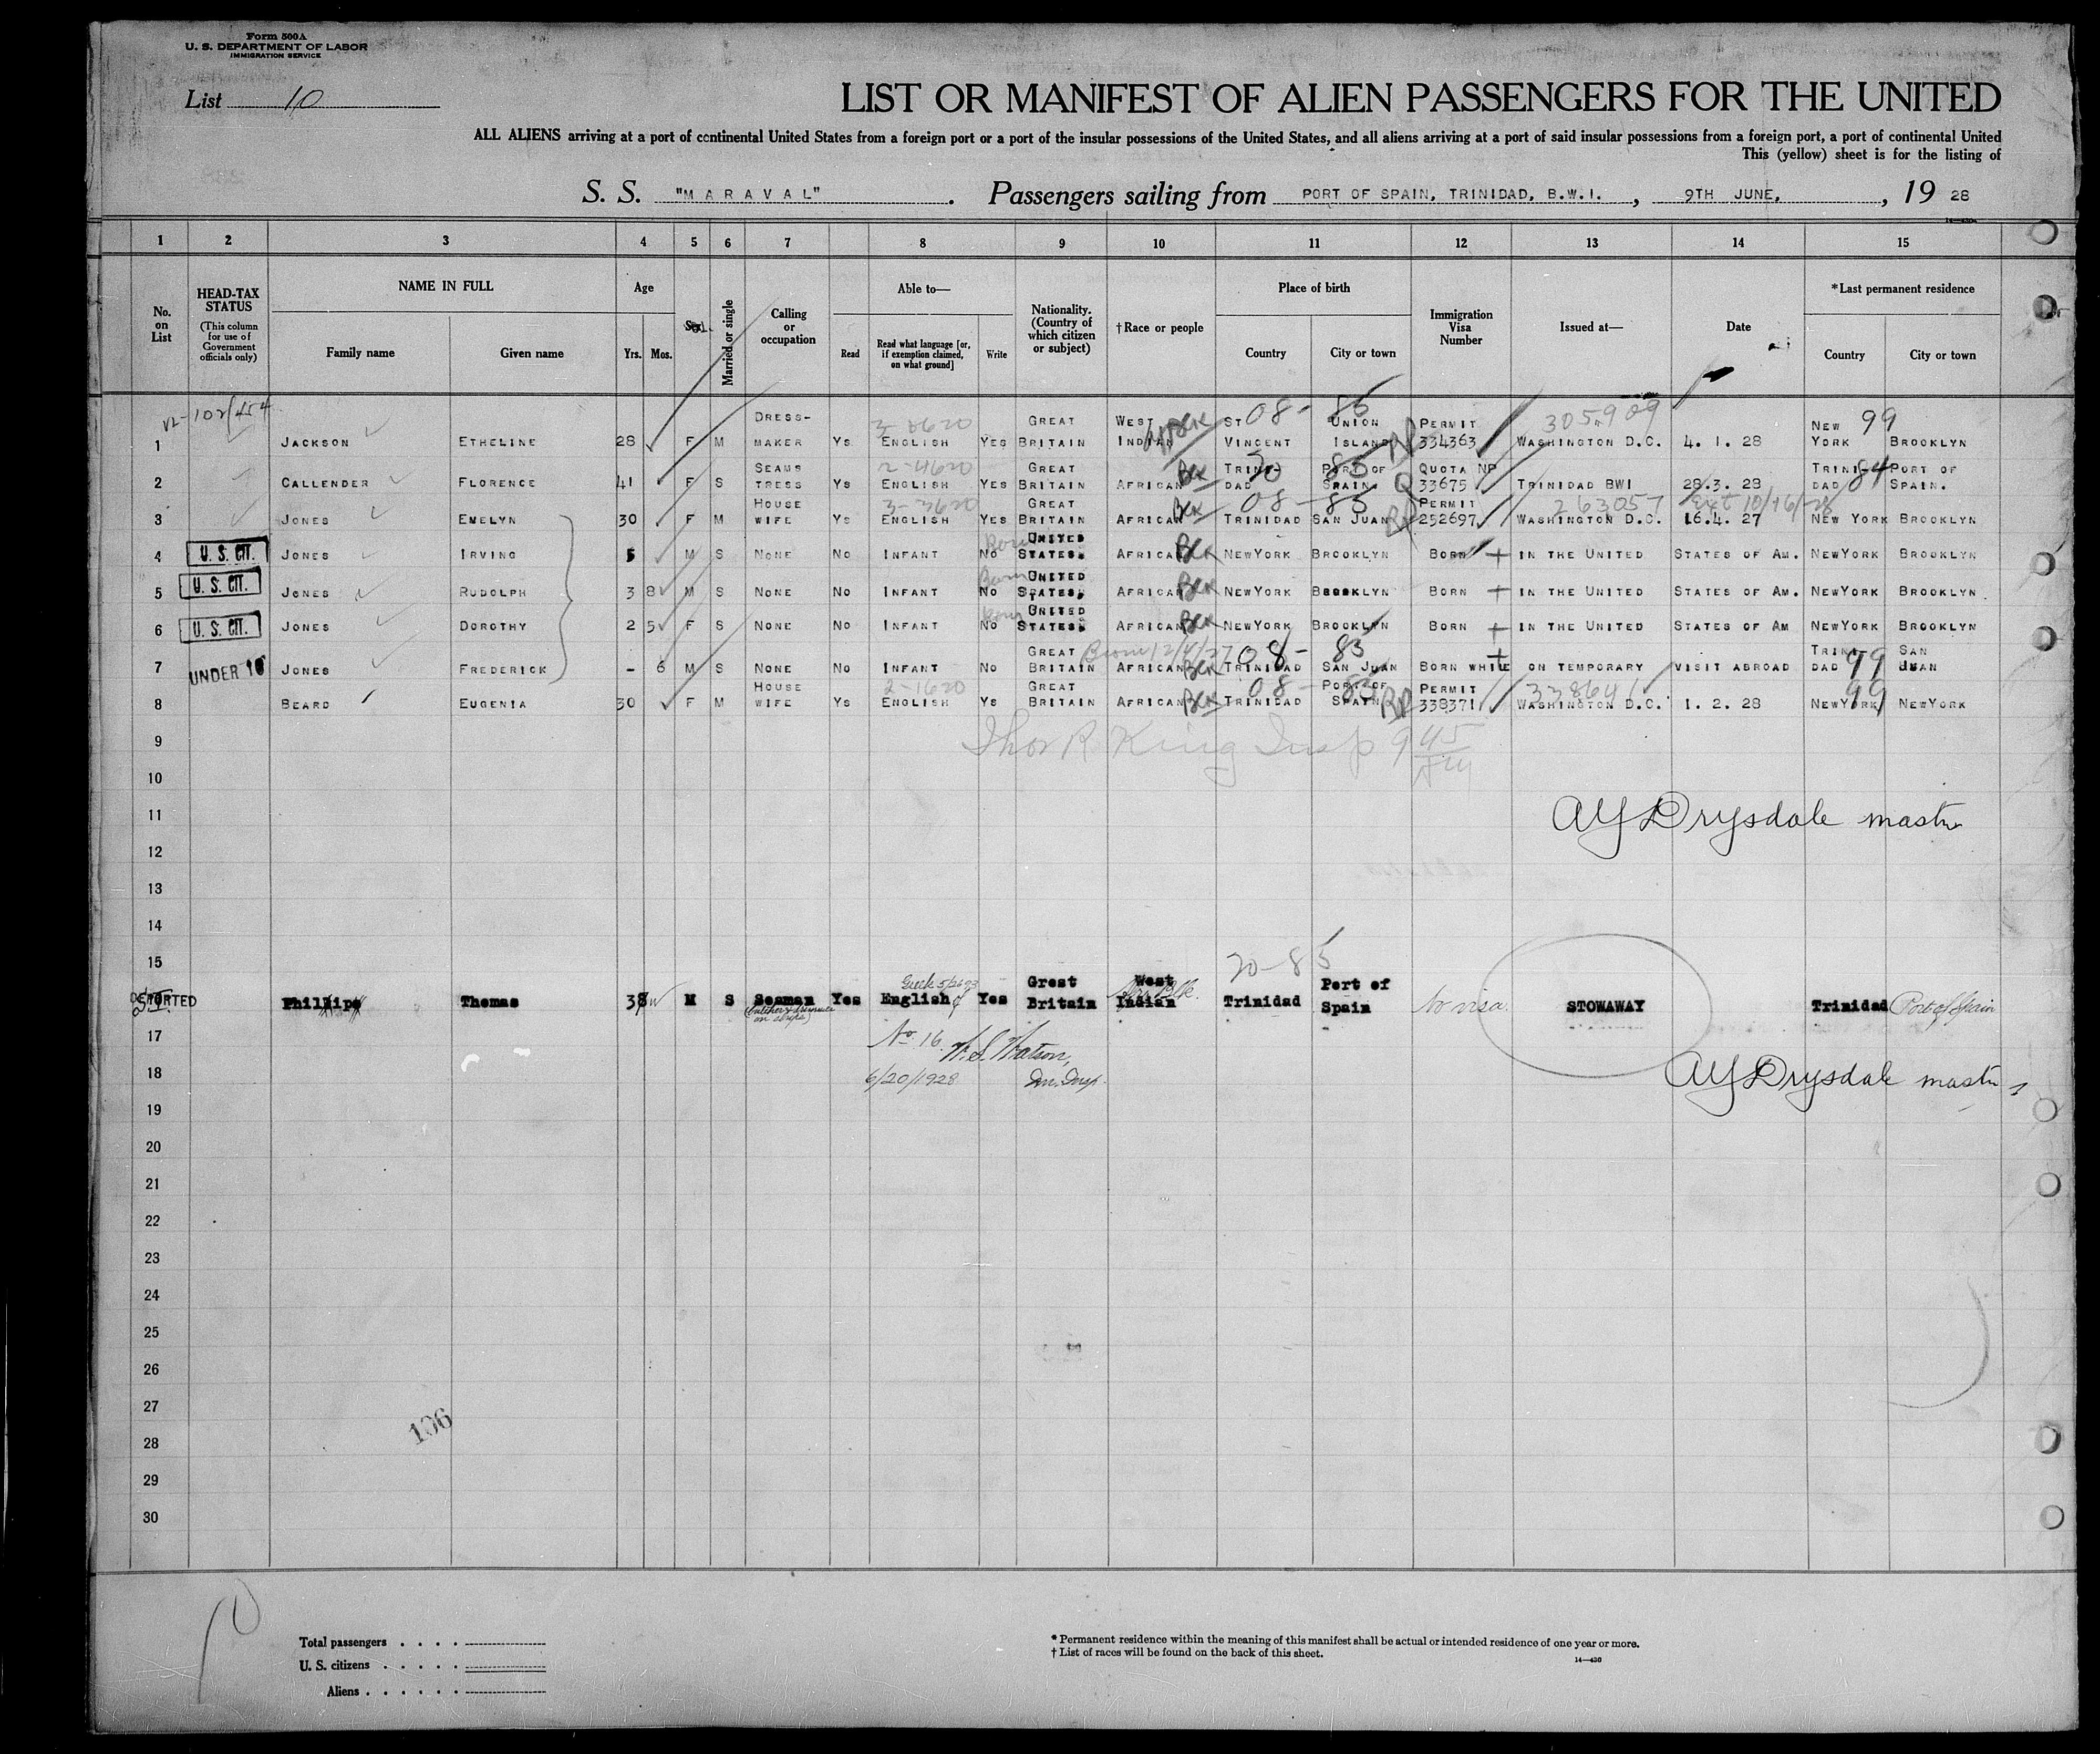 Form 500A
U. S. DEPARTMENT OF LABOR
IMMIGRATION SERVICE
List 10
LIST OR MANIFEST OF ALIEN PASSENGERS FOR THE UNITED
ALL ALIENS arriving at a port of continental United States from a foreign port or a port of the insular possessions of the United States, and all aliens arriving at a port of said insular possessions from a foreign port, a port of continental United
This (yellow) sheet is for the listing of
S. S. "MARAVAL". Passengers sailing from PORT OF SPAIN, TRINIDAD, B.W.I., 9TH JUNE, , 19 28
1 2 3 4 5 6 7 8 9 10 11 12 13 14 15
No. on List
HEAD-TAX STATUS (This column for use of Government officials only)
NAME IN FULL Family name Given name
Age Yrs. Mos.
Sex
Married or single
Calling or occupation
Able to— Read Read what language [or, if exemption claimed, on what ground] Write
Nationality. (Country of which citizen or subject)
†Race or people
Place of birth Country City or town
Immigration Visa Number
Issued at—
Date
*Last permanent residence Country City or town
1 JACKSON ETHELINE 28 F M DRESS-MAKER YS 3-3620 ENGLISH YES GREAT BRITAIN WEST INDIAN ST VINCENT 08-85 UNION ISLAND RP PERMIT 334363 305909 WASHINGTON D.C. 4. 1. 28 NEW YORK 99 BROOKLYN
2 CALLENDER FLORENCE 41 F S SEAMSTRESS YS 2-4620 ENGLISH YES GREAT BRITAIN AFRICAN Blk TRINIDAD 70 85 PORT OF SPAIN Q QUOTA NP 33675 TRINIDAD BWI 28.3. 28 TRINIDAD 84 PORT OF SPAIN.
3 JONES EMELYN 30 F M HOUSE WIFE YS 3-3620 ENGLISH YES GREAT BRITAIN AFRICAN Blk 08-85 TRINIDAD SAN JUAN RP PERMIT 252697 263057 WASHINGTON D.C. Ext 10/16/28 16.4. 27 NEW YORK BROOKLYN
4 U. S. CIT. JONES IRVING 5 M S NONE NO INFANT NO Born UNITED STATES. AFRICAN Blk NEWYORK BROOKLYN BORN IN THE UNITED STATES OF AM. NEWYORK BROOKLYN
5 U. S. CIT. JONES RUDOLPH 3 8 M S NONE NO INFANT NO Born UNITED STATES. AFRICAN Blk NEWYORK BROOKLYN BORN IN THE UNITED STATES OF AM. NEWYORK BROOKLYN
6 U. S. CIT. JONES DOROTHY 2 5 F S NONE NO INFANT NO Born UNITED STATES. AFRICAN Blk NEWYORK BROOKLYN BORN IN THE UNITED STATES OF AM NEWYORK BROOKLYN
7 UNDER 16 JONES FREDERICK - 6 M S NONE NO INFANT NO GREAT BRITAIN AFRICAN Blk 08-85 TRINIDAD SAN JUAN BORN WHILE ON TEMPORARY VISIT ABROAD TRINIDAD 99 SAN JUAN
8 BEARD EUGENIA 30 F M HOUSE WIFE YS 2-1620 ENGLISH YS GREAT BRITAIN AFRICAN Blk 08-85 TRINIDAD PORT OF SPAIN RP PERMIT 338371 338641 WASHINGTON D.C. 1. 2. 28 NEWYORK 99 NEWYORK
9 Thos R King Insp 9 45 AM
10
11 AY Drysdale master
12
13
14
15
DEPORTED Phillips Thomas 38 M S Seaman Yes English Yes Great Britain West Indian Afr. Blk. 70-85 Trinidad Port of Spain No visa. STOWAWAY Trinidad Port of Spain
17 No. 16. W.S. Watson,
18 6/20/1928 Im. Insp. AY Drysdale master
19
20
21
22
23
24
25
26
27
106
28
29
30
10
Total passengers . . . .
U. S. citizens . . . . .
Aliens . . . . . .
* Permanent residence within the meaning of this manifest shall be actual or intended residence of one year or more.
† List of races will be found on the back of this sheet.
14—430